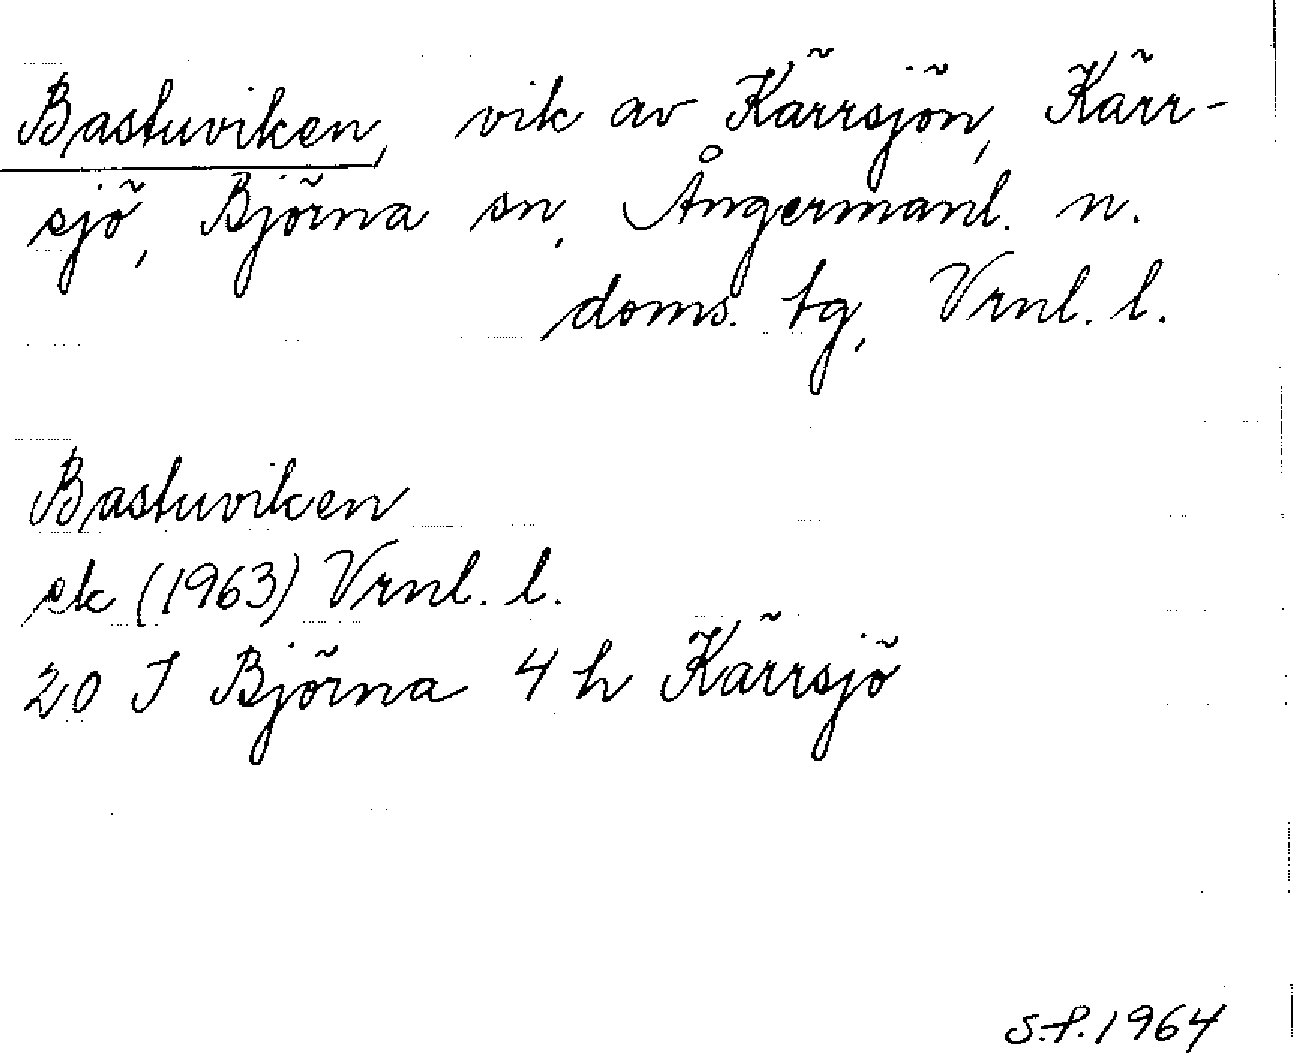 Bastuviken, vik av Kärrsjön, Kärr-
sjö, Björna sn, Ångermanl. n.
doms. tg, Vrnl. l.
Bastuviken
ek (1963) Vrnl. l.
20 I Björna 4 h Kärrsjö
S.P. 1964